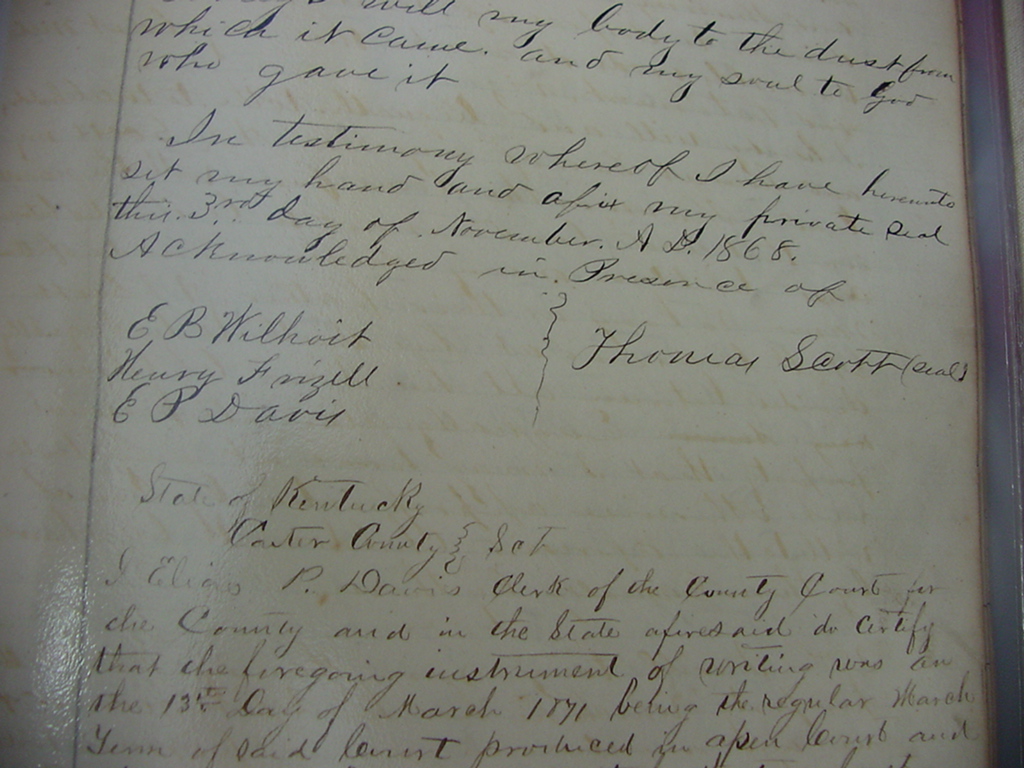 will my body to the dust from
which it came. and my soul to god
who gave it
In testimony whereof I have hereunto
set my hand and afix my private seal
this 3rd day of November. A D. 1868.
Acknowledged in Presence of
E B Wilhoit
Henry
E P Davis
Thomas Scott (seal)
State of Kentucky
Carter County } Sct
I Elias P. Davis Clerk of the County Court for
the County and in the State aforesaid do certify
that the foregoing instrument of writing was on
the 13th Day of March 1871 being the regular March
Term of said Court produced in open Court and